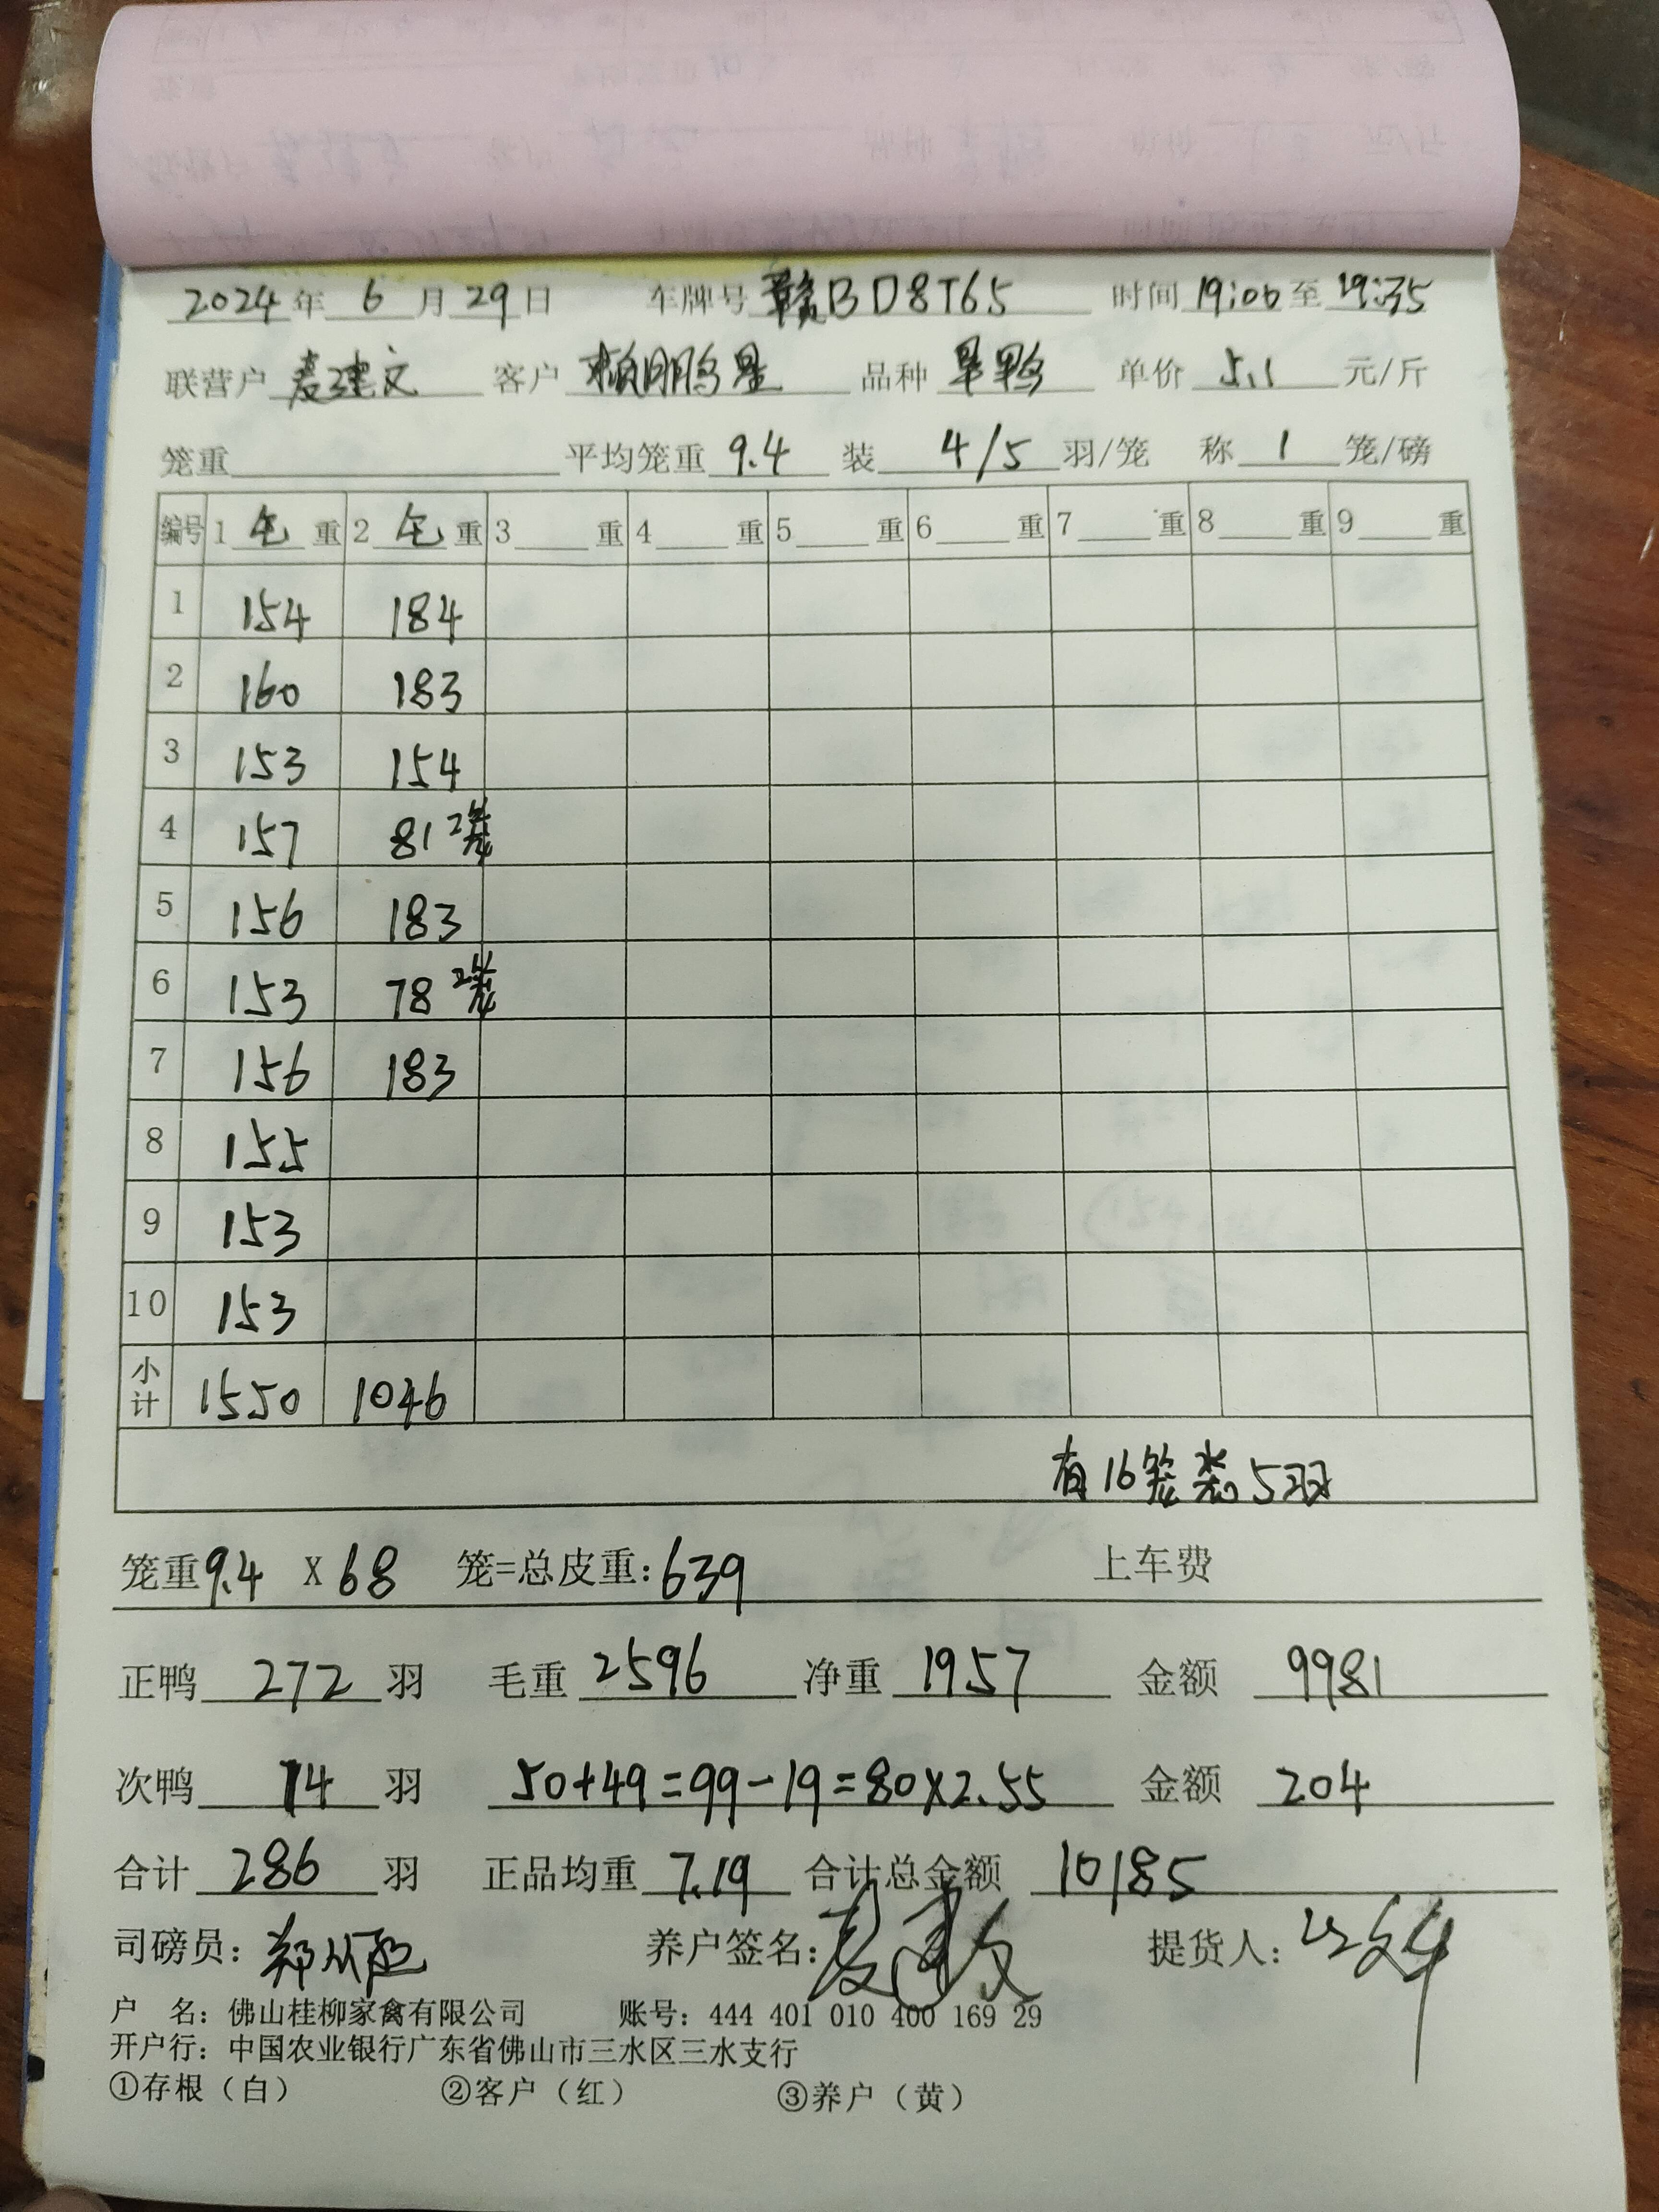 2024 年 6 月 29 日 车牌号 赣BD8T65 时间 19:00 至 19:35
联营户 麦建文 客户 赖鹏星 品种 旱鸭 单价 5.1 元/斤
笼重 平均笼重 9.4 装 4/5 羽/笼 称 1 笼/磅
编号 1 毛 重 2 毛 重 3 重 4 重 5 重 6 重 7 重 8 重 9 重
1 154 184
2 160 183
3 153 154
4 157 81 2笼
5 156 183
6 153 78 2笼
7 156 183
8 155
9 153
10 153
小计 1550 1046
有16笼装5羽
笼重 9.4 X 68 笼=总皮重: 639 上车费
正鸭 272 羽 毛重 2596 净重 1957 金额 9981
次鸭 14 羽 50+49=99-19=80×2.55 金额 204
合计 286 羽 正品均重 7.19 合计总金额 10185
司磅员: 养户签名: 麦建文 提货人:
户 名: 佛山桂柳家禽有限公司 账号: 444 401 010 400 169 29
开户行: 中国农业银行广东省佛山市三水区三水支行
①存根（白） ②客户（红） ③养户（黄）